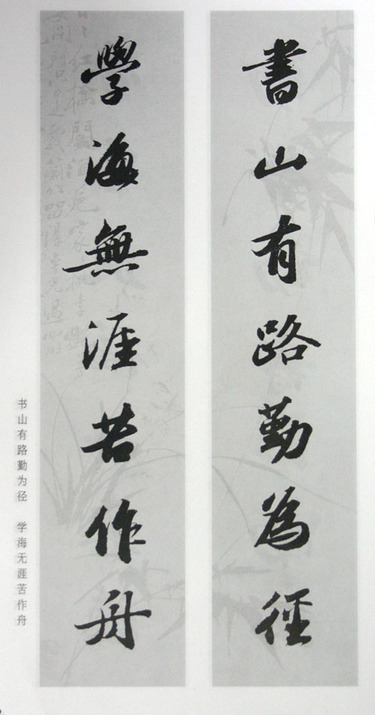 書山有路勤為徑
學海無涯苦作舟
书山有路勤为径 学海无涯苦作舟